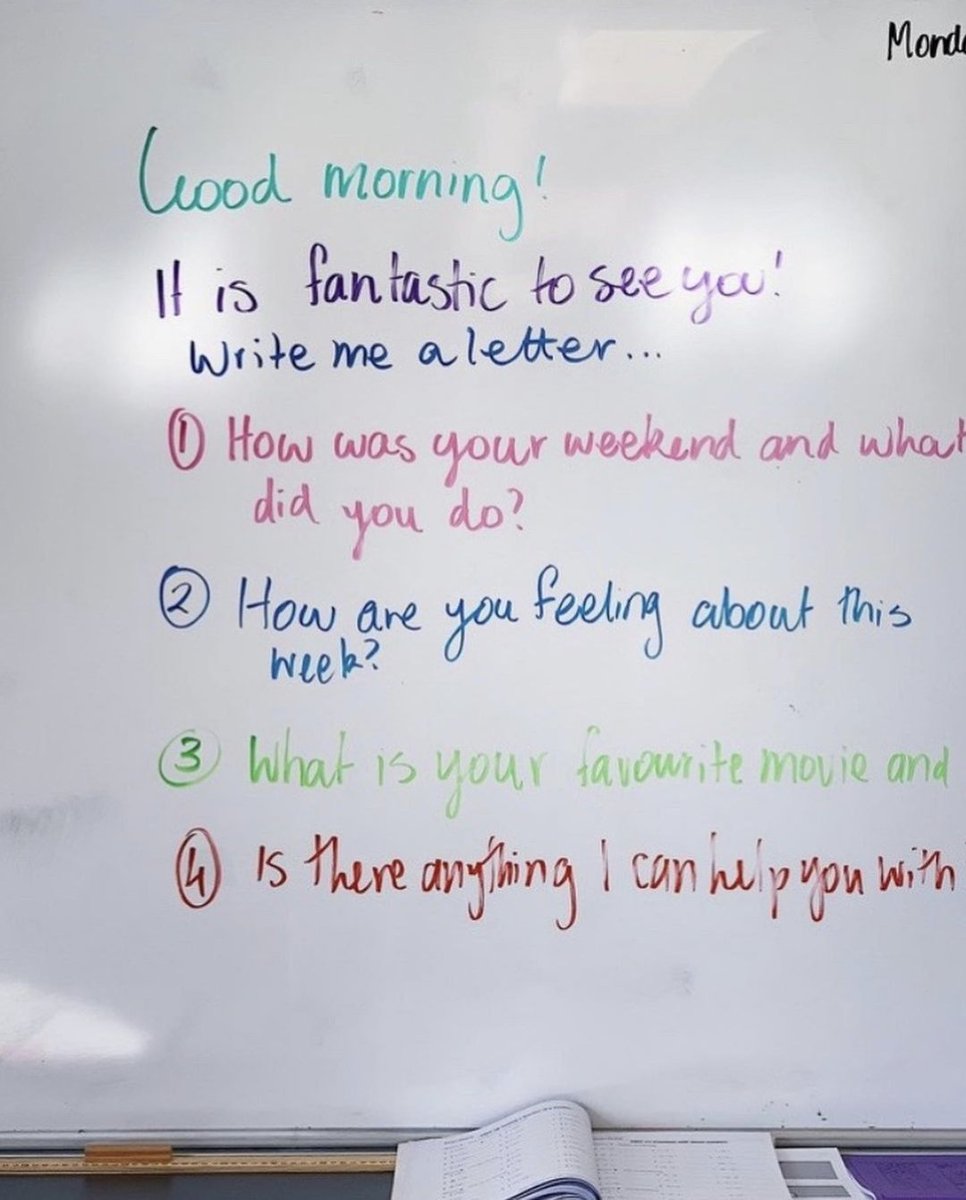 Monda
Good morning!
It is fantastic to see you!
Write me a letter...
① How was your weekend and what
did you do?
② How are you feeling about this
week?
③ What is your favourite movie and
④ Is there anything I can help you with